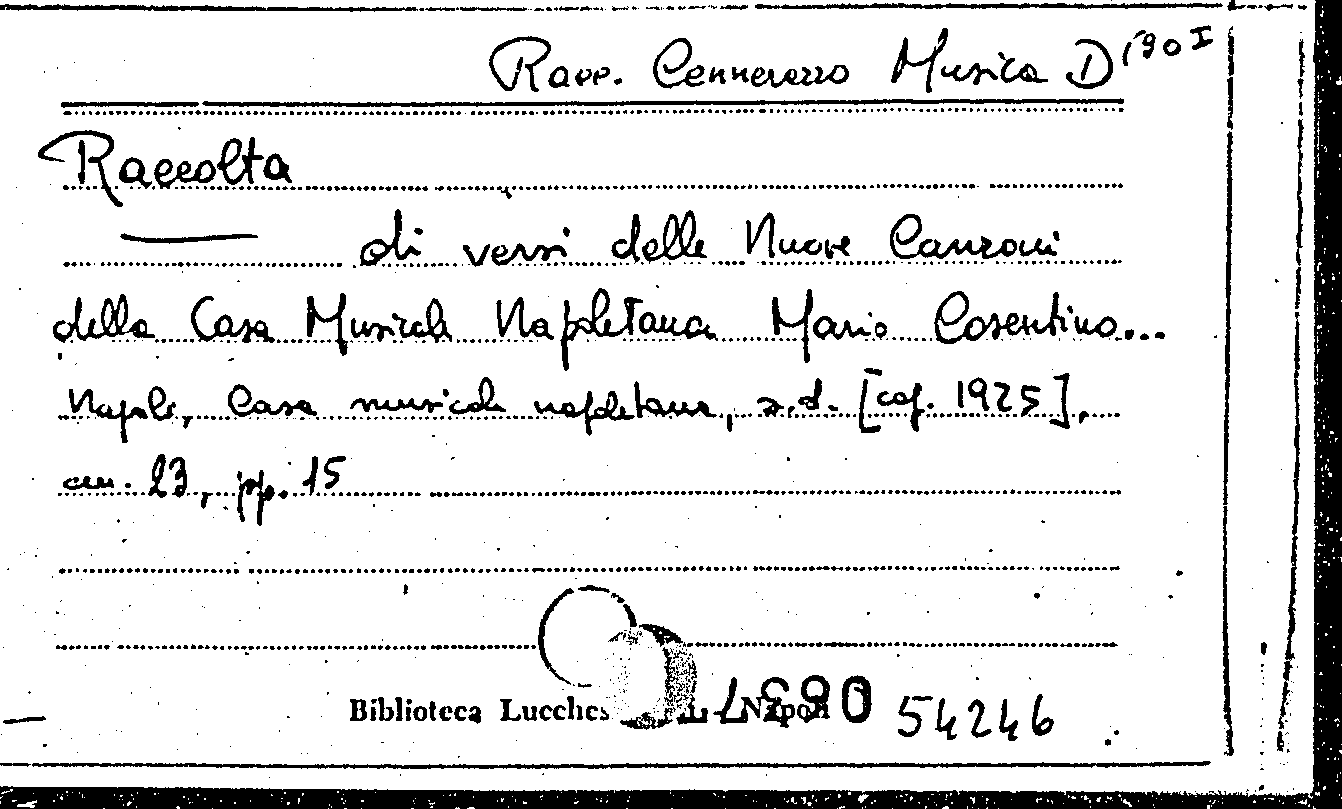 Racc. Cennerazzo Musica D 190 I
Raccolta
di versi delle Nuove Canzoni
della Casa Musicale Napoletana Mario Cosentino...
Napoli, Casa musicale napoletana, s.d. [cop. 1925],
cm. 23, pp. 15
Biblioteca Lucches Napoli 54246